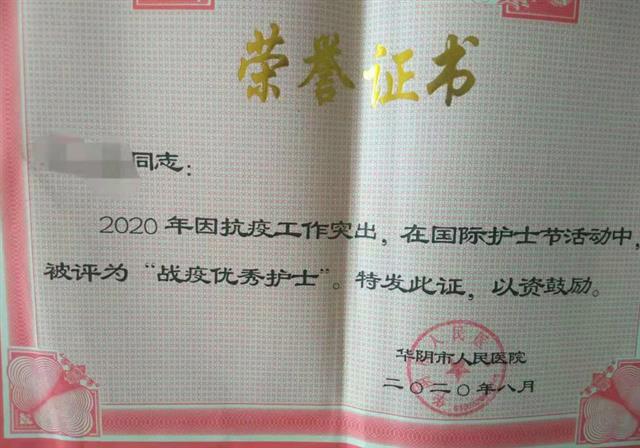 荣誉证书
同志：
2020年因抗疫工作突出，在国际护士节活动中，
被评为“战疫优秀护士”。特发此证，以资鼓励。
华阴市人民医院
二〇二〇年八月